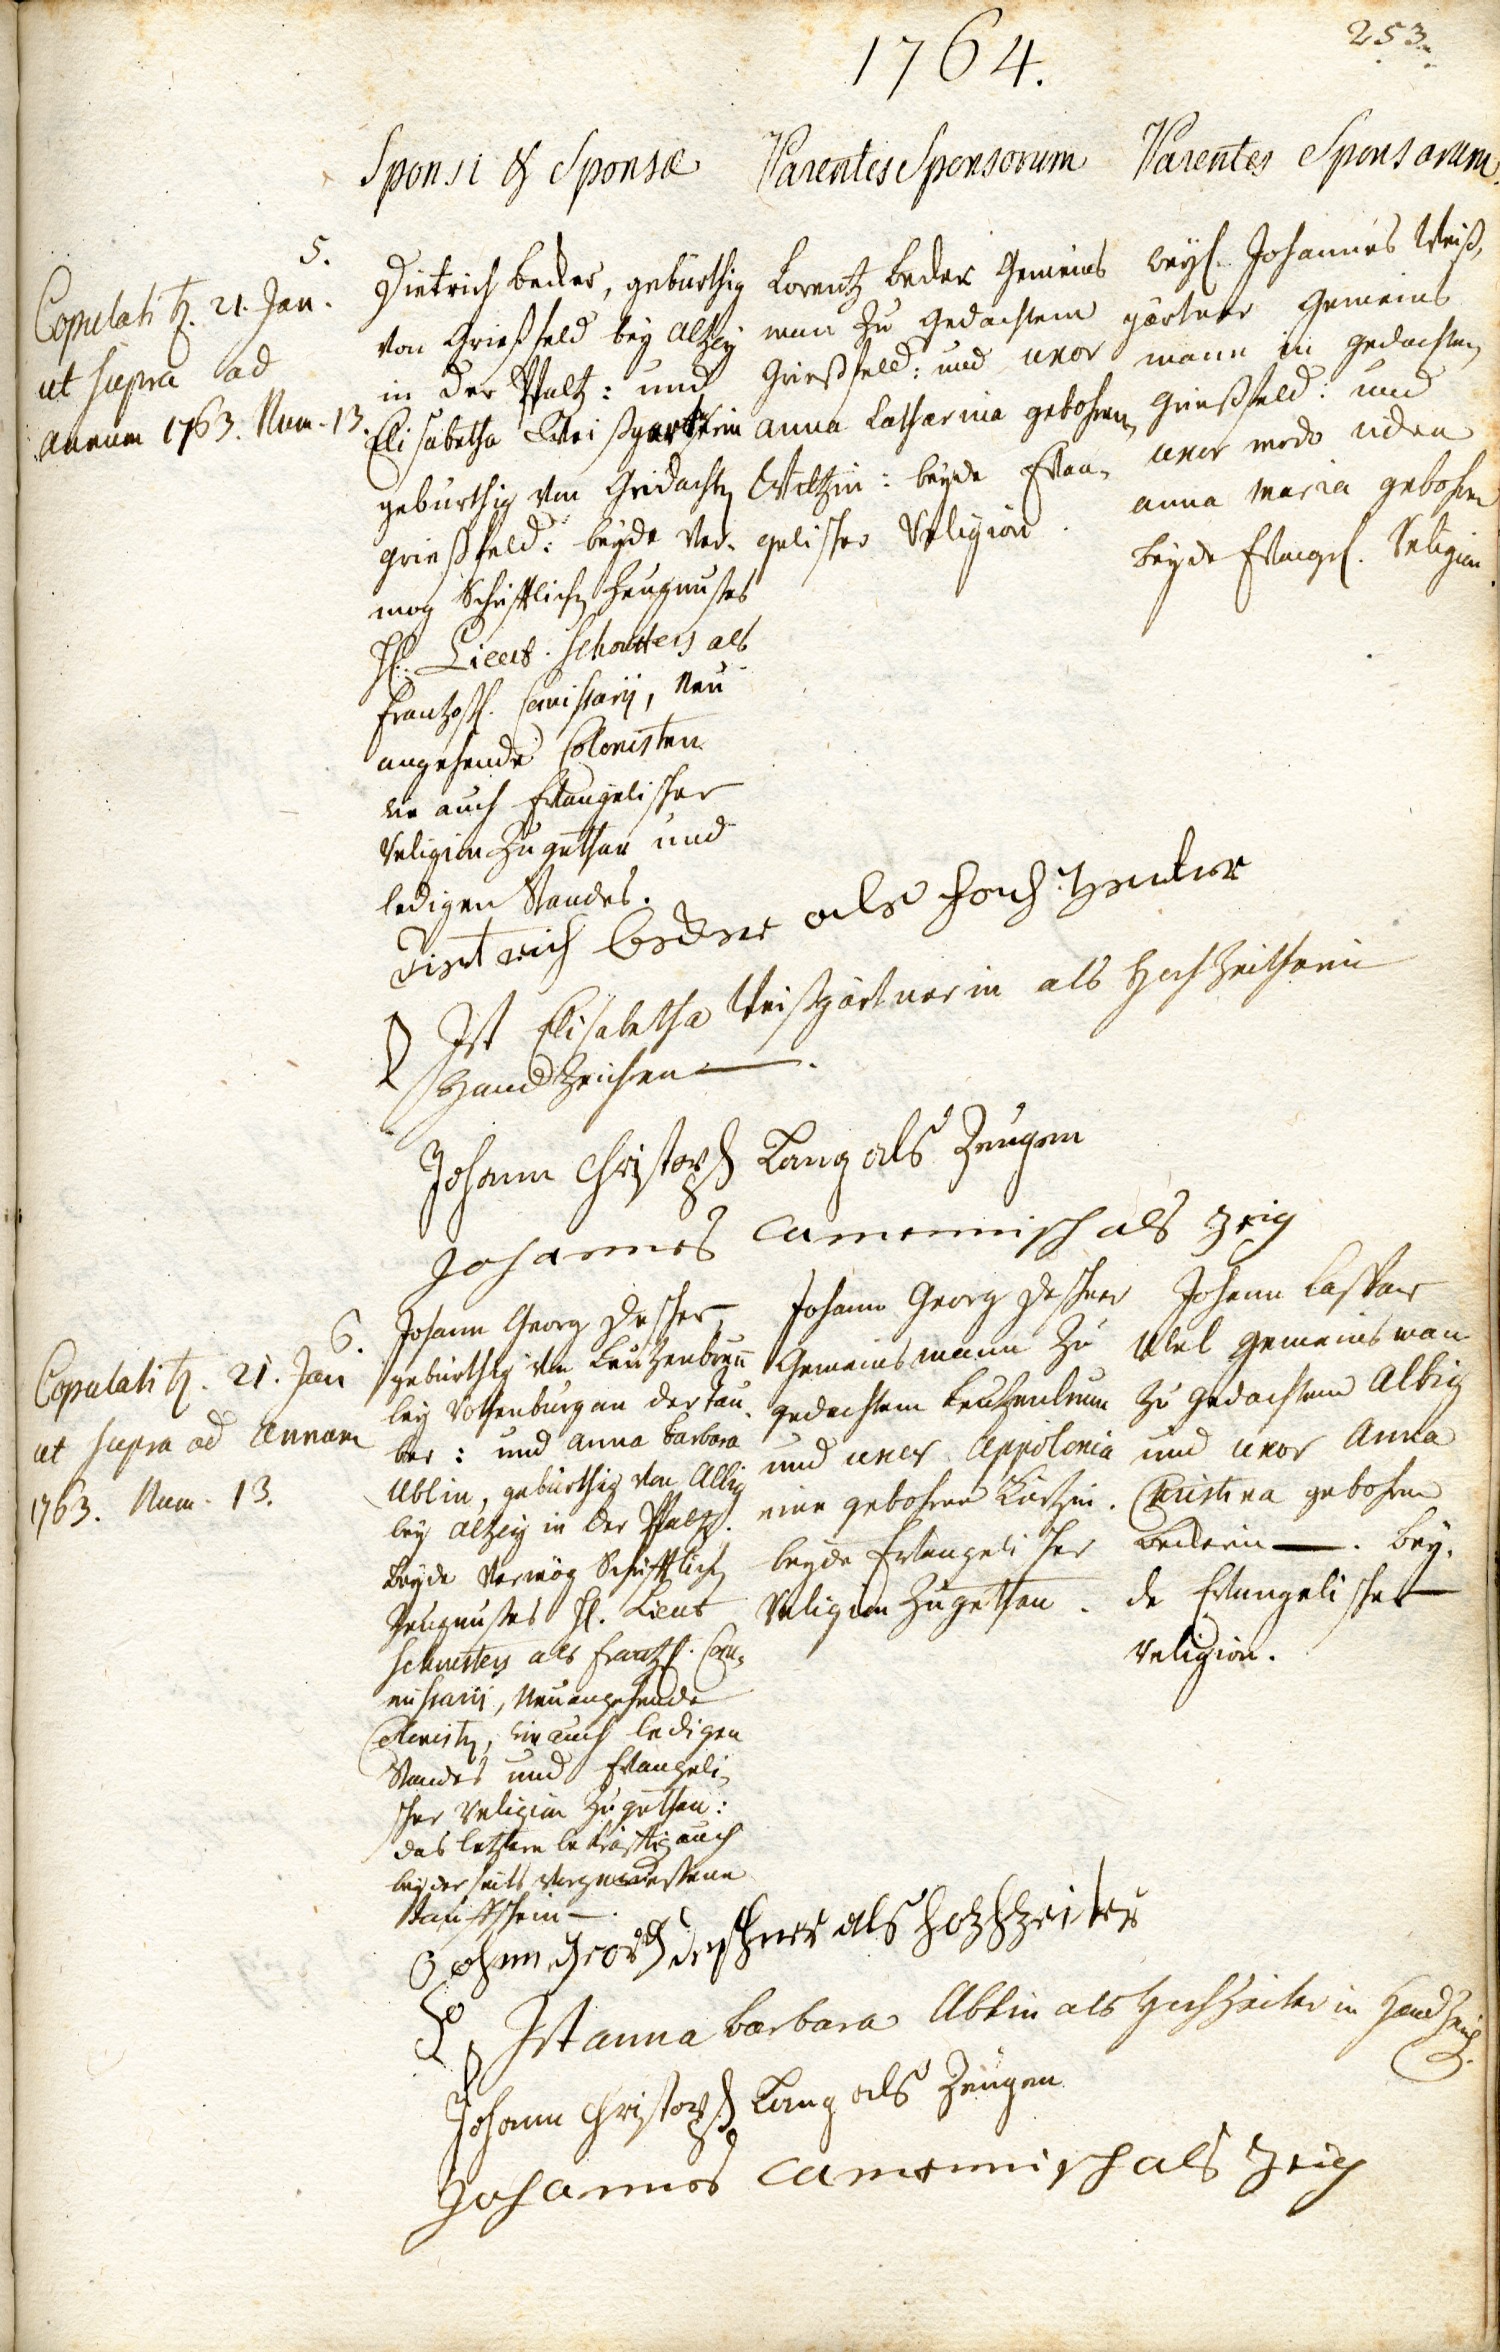 253.
1764.
Sponsi & Sponsæ
Parentes Sponsorum
Parentes Sponsarum.
5.
Copulati tz. 21. Jan.
ut supra ad
annum 1763. Num. 13.
Dietrich Becker, gebürthig
von Grießfeld bey Altzey
in der Pfaltz: und
Elisabetha Weißgartnerin
gebürthig von Gedachten
Grießfeld: beyde ver-
mög Schrifftlichen Zeugnußes
H. Lieut. Schoutters als
Frantzoß. Comissarij, Neu
angehende Colonisten
wie auch Evangelischer
Religion Zugethan und
ledigen Standes.
Lorentz Becker Gemeins
man zu gedachtem
Grießfeld: und uxor
anna Catharina gebohrne
beyde Evan-
gelischer Religion.
weyl. Johannes Weiß,
gärtner Gemeins
mann in gedachten
Grießfeld: und
uxor modo vidua
anna Maria gebohrne
beyde Evangel. Religion.
Dietrich Becker als Hochzeiter
Ist Elisabetha Weißgärtnerin als Hochzeitherin
Handzeichen —.
Johann Christoph Lang als Zeugen
Johannes Camennisch als Zeig
6.
Copulati tz. 21. Jan
ut supra ad annum
1763. Num. 13.
Johann Georg Descher,
gebürthig von
bey Rothenburg an der Tau-
ber: und anna Barbara
Ublin, gebürthig von Albig
bey Altzey in der Pfaltz.
beyde Vermög Schrifftlichen
Zeugnußes H. Lieut
Schoutters als Frantzß. Com-
missarij, Neu angehende
Colonisten, wie auch ledigen
Standes und Evangeli-
scher Religion Zugethan:
das letztere bekräfftig auch
beyderseits vorgewießene
Tauffschein —.
Johann Georg Deschner
Gemeinsmann zu
gedachtem
und uxor Appolonia
eine gebohrne
beyde Evangelischer
Religion Zugethan.
Johann Caspar
Ubel Gemeinsman
zu gedachtem Albig
und uxor Anna
Christina gebohrne
Beckerin —. bey-
de Evangelischer
Religion.
Johann Georg Deschner als Hochzeiter
Ist anna Barbara Ublin als Hochzeiterin Handzeich.
Johann Christoph Lang als Zeugen
Johannes Camennisch als Zeig